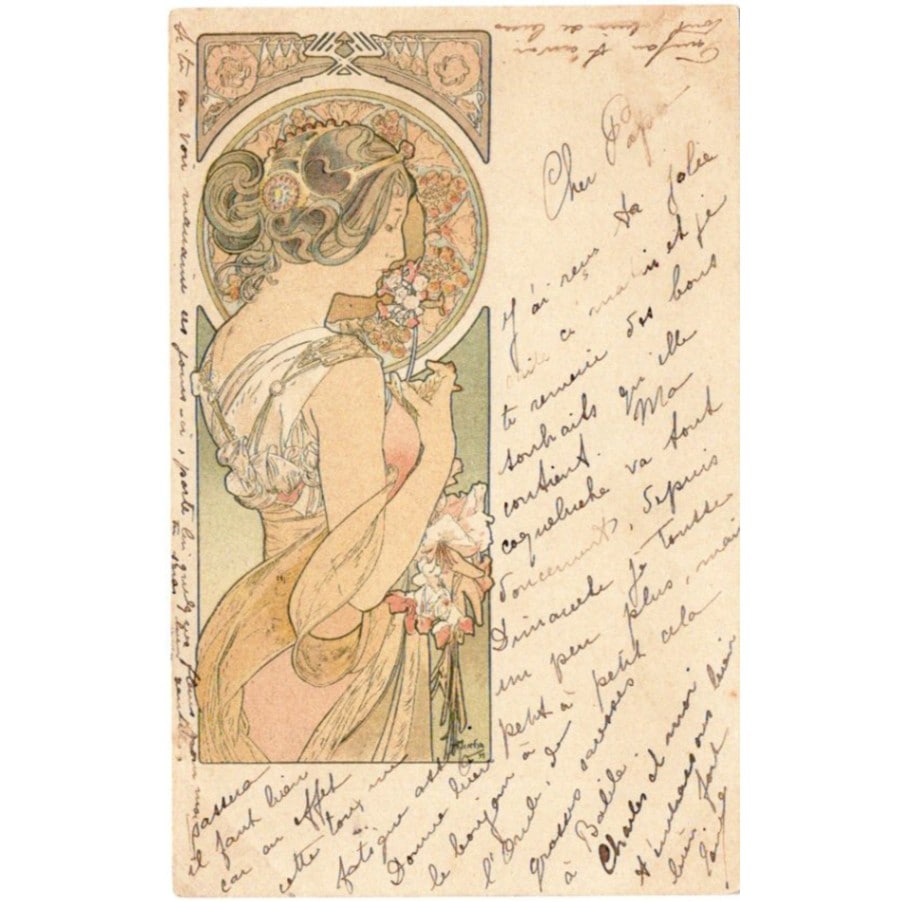 Cher Papa
J'ai reçu ta jolie
carte ce matin et je
te remercie des bons
souhaits qu'elle
contient. Ma
coqueluche va tout
doucement, depuis
Dimanche je tousse
un peu plus, mais
petit à petit cela
passera
il faut bien
car en effet
cette toux me
fatigue
Donne bien
le bonjour à
l'Oncle, de
grosses caresses
à Bébé
Charles et moi
t'embrassons bien
bien fort
Si tu va voir ces jours-ci, porte lui quelque fleurs
Mucha